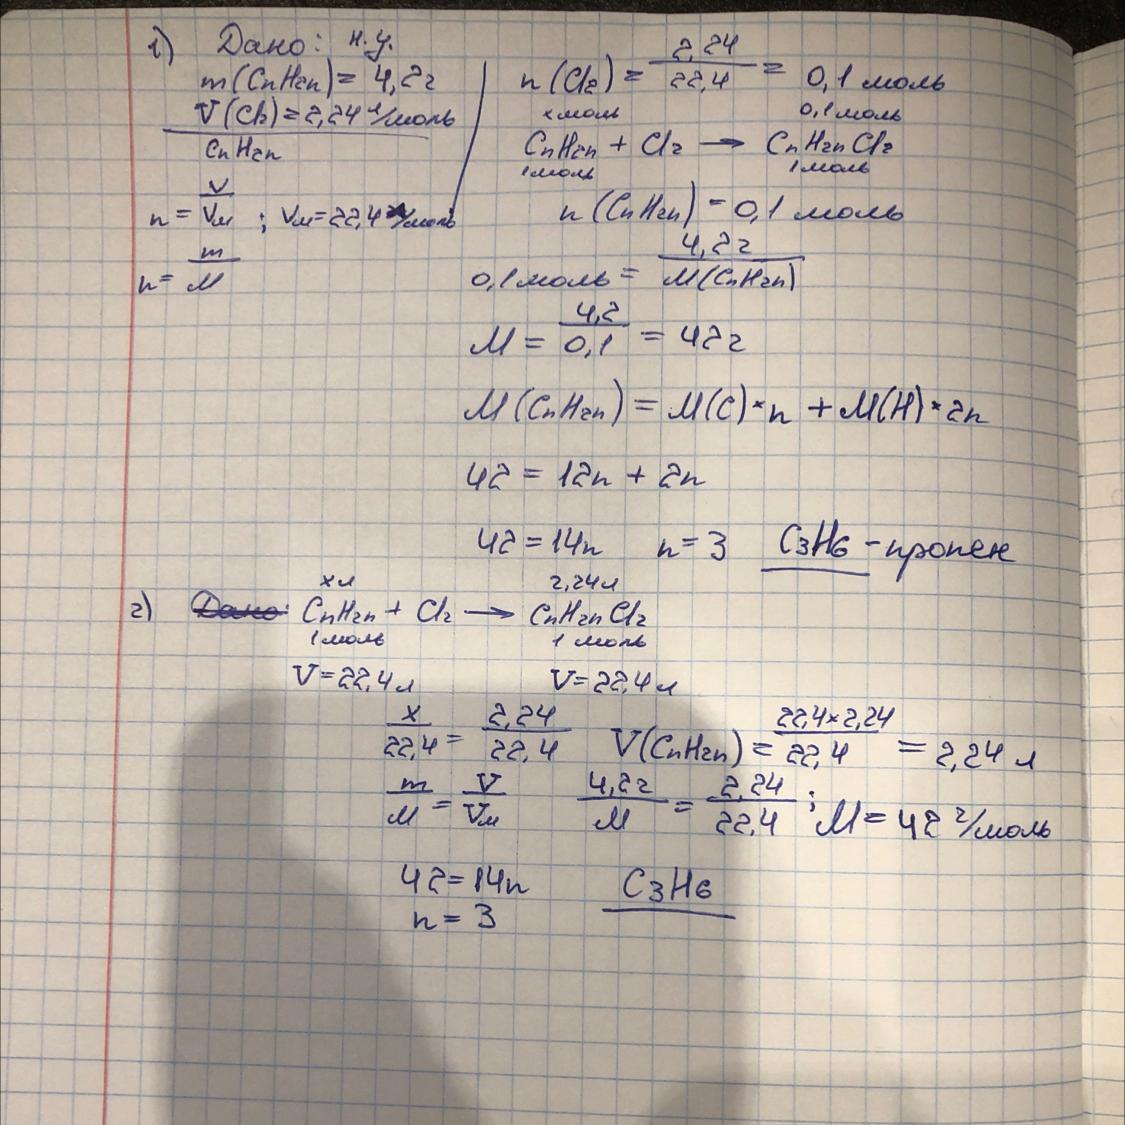 1) Дано: н.у.
m(CnH2n) = 4,2г
V(Cl2) = 2,24 л/моль
CnH2n
n = V/Vм ; Vм = 22,4 л/моль
n = m/M
n(Cl2) = 2,24/22,4 = 0,1 моль
x моль 0,1 моль
CnH2n + Cl2 → CnH2nCl2
1 моль 1 моль
n(CnH2n) = 0,1 моль
0,1 моль = 4,2г/M(CnH2n)
M = 4,2/0,1 = 42г
M(CnH2n) = M(C)*n + M(H)*2n
42 = 12n + 2n
42 = 14n n = 3 C3H6 - пропен
x л 2,24л
2) Дано: CnH2n + Cl2 → CnH2nCl2
1 моль 1 моль
V = 22,4 л V = 22,4 л
x/22,4 = 2,24/22,4 V(CnH2n) = 22,4×2,24/22,4 = 2,24 л
m/M = V/Vм 4,2г/M = 2,24/22,4 ; M = 42 г/моль
42 = 14n C3H6
n = 3